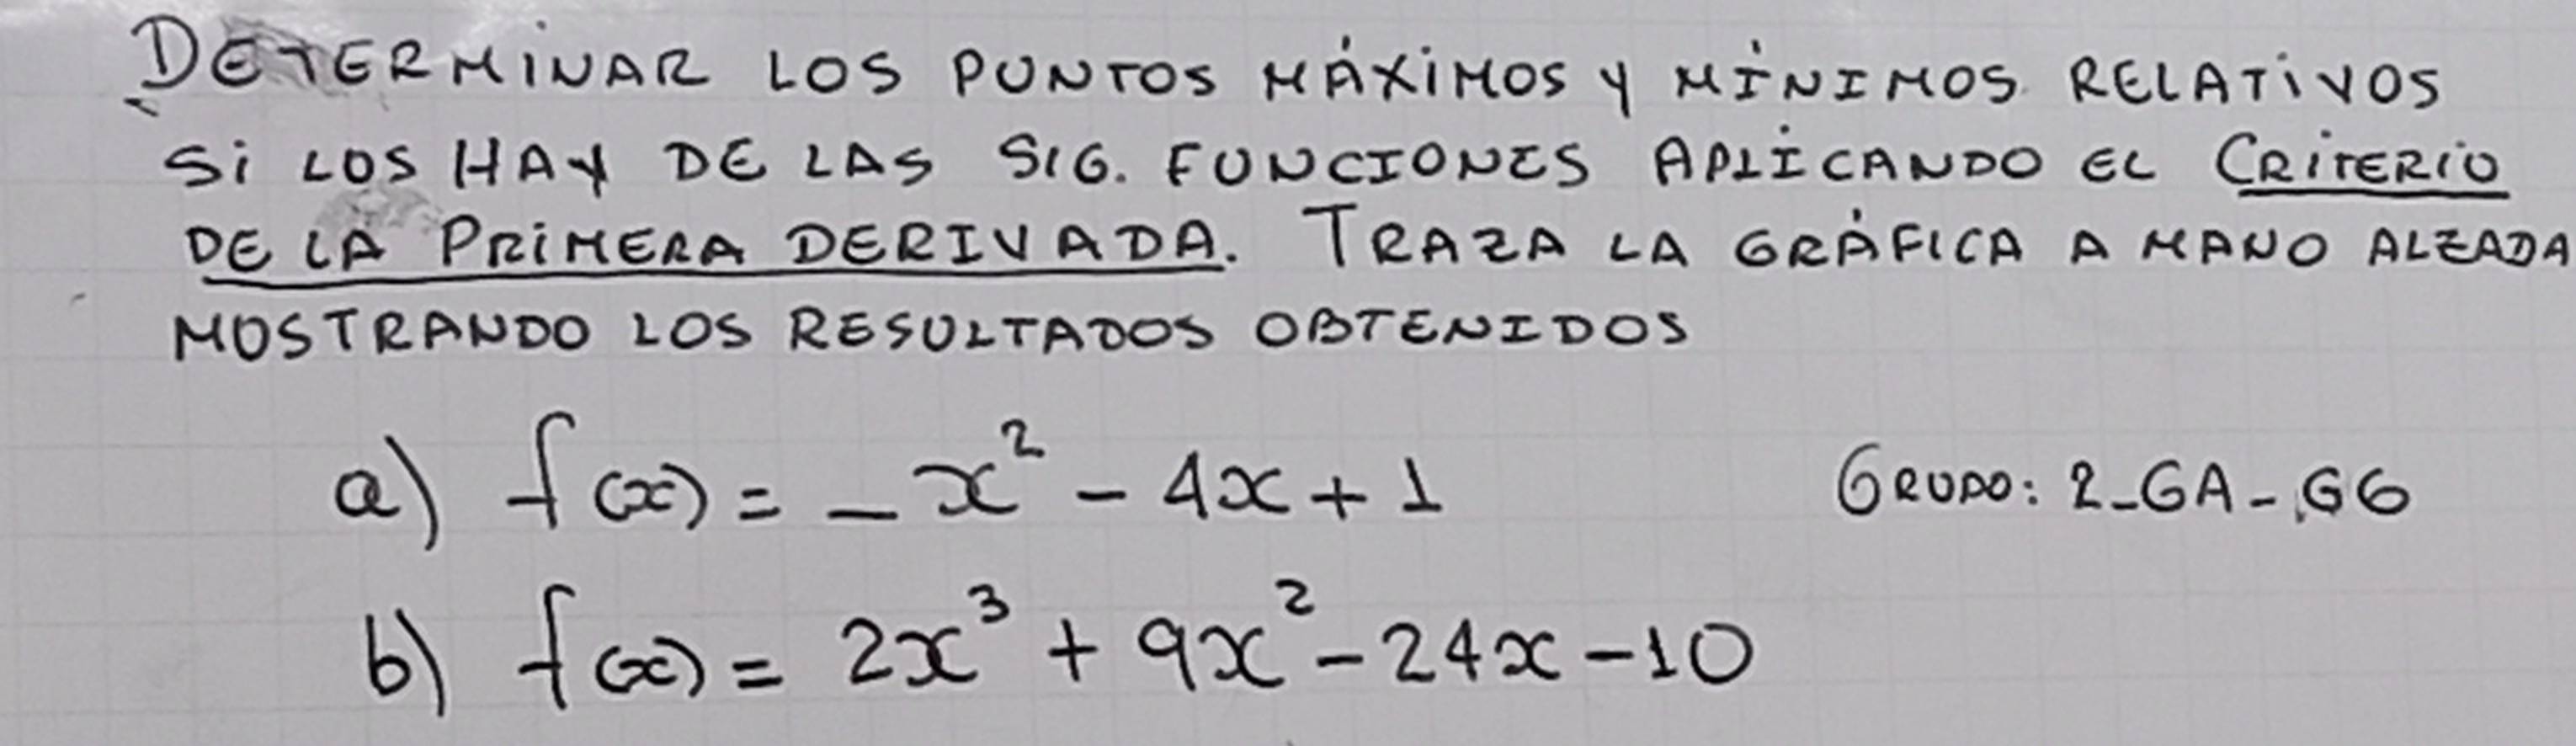 DETERMINAR LOS PUNTOS MÁXIMOS Y MÍNIMOS RELATIVOS
SI LOS HAY DE LAS SIG. FUNCIONES APLICANDO EL CRITERIO
DE LA PRIMERA DERIVADA. TRAZA LA GRÁFICA A MANO ALZADA
MOSTRANDO LOS RESULTADOS OBTENIDOS
a) f(x) = -x² - 4x + 1 GRUPO: 2-GA-G6
b) f(x) = 2x³ + 9x² - 24x - 10